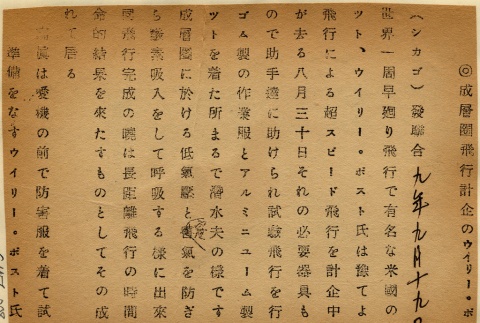 ◎成層圏飛行計企のウイリー。ポ
九年九月十九
(シカゴ)發聯合
世界一周早廻り飛行で有名な米國の
ツト、ウイリー。ポスト氏は豫てよ
飛行による超スピード飛行を計企中
が去る八月三十日それの必要器具も
ので助手達に助けられ試驗飛行を行
ゴム製の作業服とアルミニユーム製
ツトを着た所まるで潜水夫の樣です
成層圏に於ける低氣壓と氣を防ぎ
ら酸素吸入をして呼吸する樣に出來
層飛行完成の曉は長距離飛行の時間
命的結果を來たすものとしてその成
れて居る
寫眞は愛機の前で防害服を着て試
準備をなすウイリー。ポスト氏